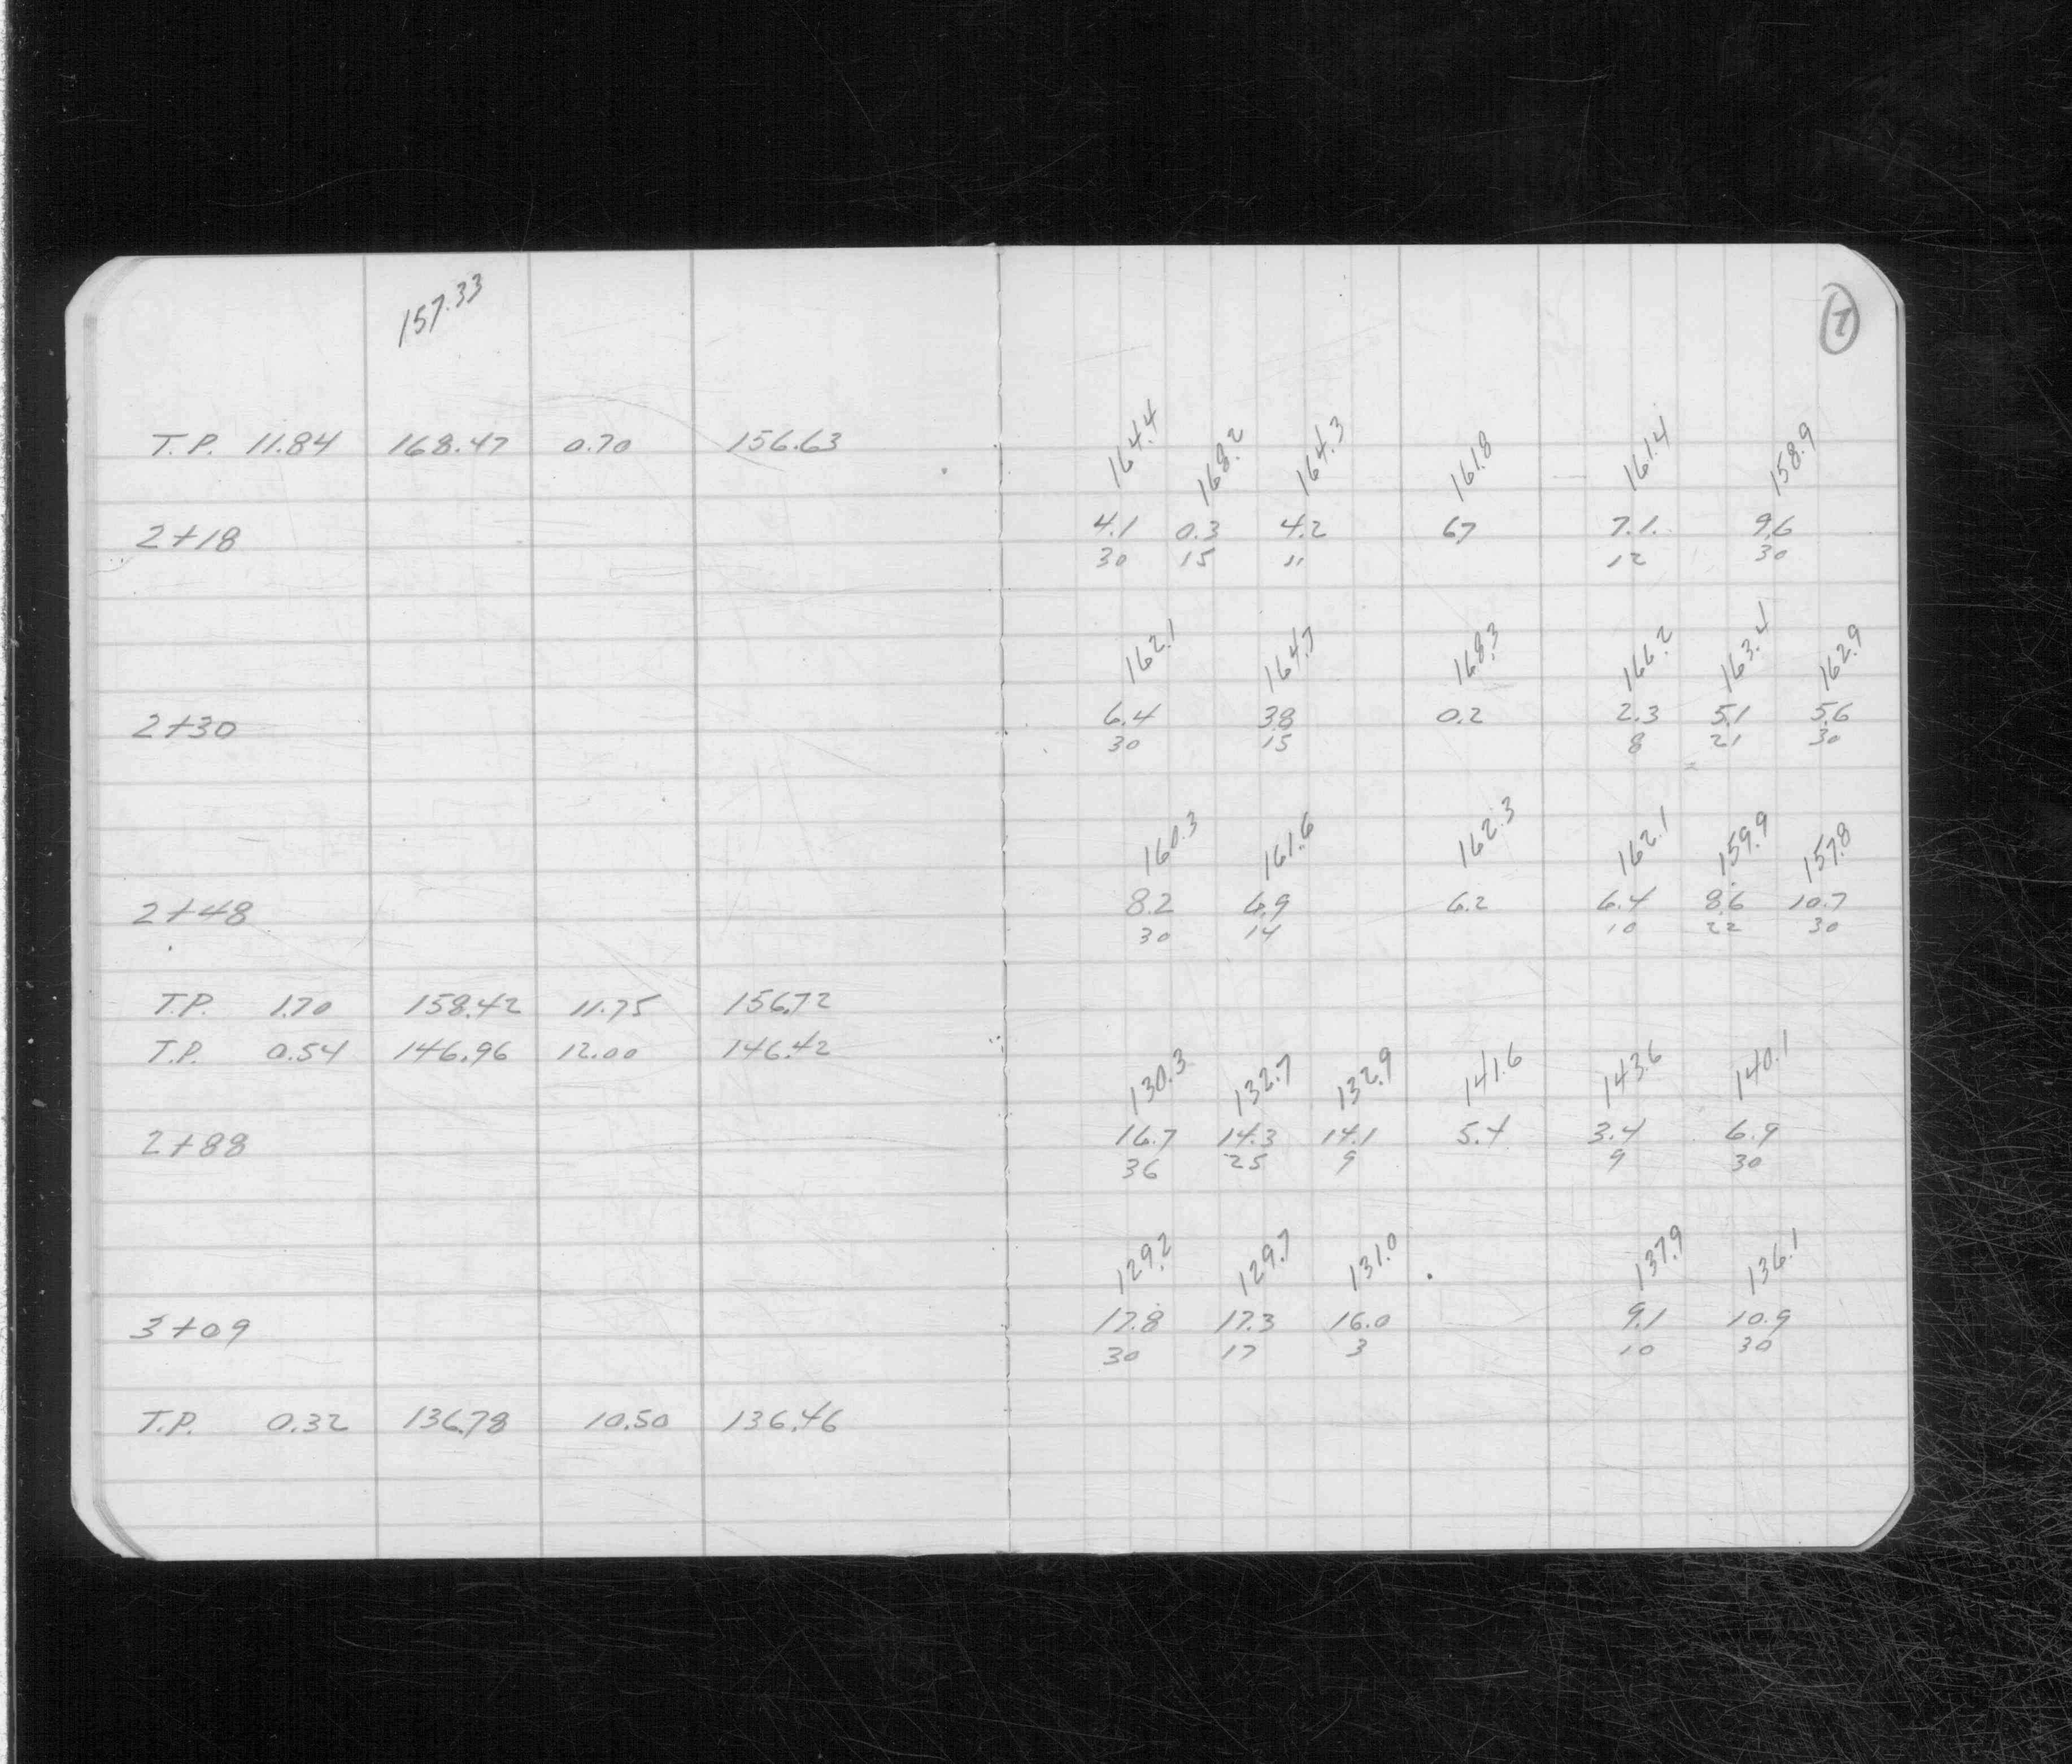 157.33
7
T.P. 11.84 168.47 0.70 156.63
164.4 168.2 164.3 161.8 161.4 158.9
2+18 4.1 0.3 4.2 67 7.1. 9.6
30 15 11 12 30
162.1 164.7 168.3 166.2 163.4 162.9
2+30 6.4 3.8 0.2 2.3 5.1 5.6
30 15 8 21 30
160.3 161.6 162.3 162.1 159.9 157.8
2+48 8.2 6.9 6.2 6.4 8.6 10.7
30 14 10 22 30
T.P. 1.70 158.42 11.75 156.72
T.P. 0.54 146.96 12.00 146.42
130.3 132.7 132.9 141.6 143.6 140.1
2+88 16.7 14.3 14.1 5.4 3.4 6.9
36 25 9 9 30
129.2 129.7 131.0 137.9 136.1
3+09 17.8 17.3 16.0 9.1 10.9
30 17 3 10 30
T.P. 0.32 136.78 10.50 136.46